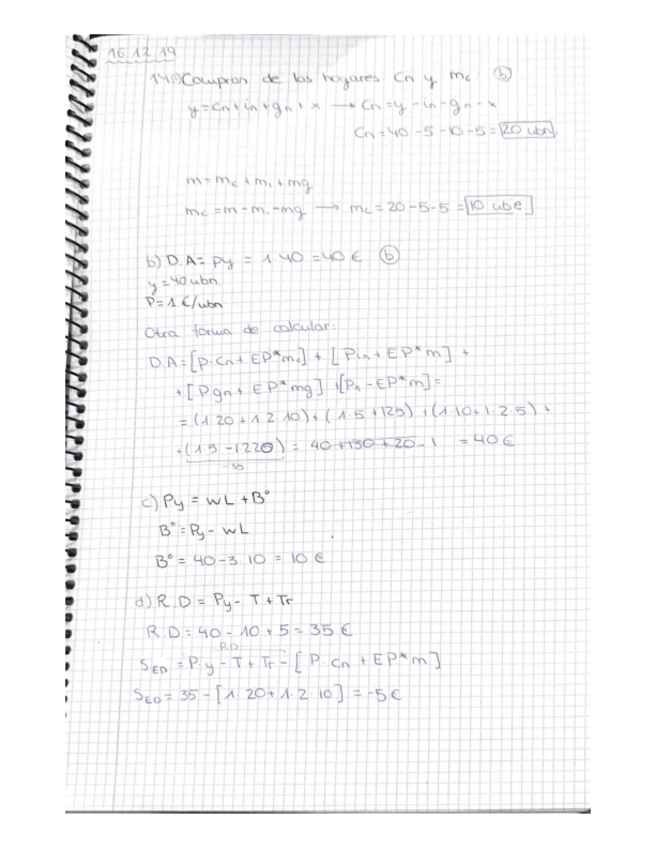 16.12.19
14a) Compras de los hogares Cn y mc (b)
y = Cn + in + gn + x → Cn = y - in - gn - x
Cn = 40 - 5 - 10 - 5 = 20 ubn
m = mc + mi + mg
mc = m - mi - mg → mc = 20 - 5 - 5 = 10 ube
b) D.A = Py = 1·40 = 40 € (b)
y = 40 ubn
P = 1 €/ubn
Otra forma de calcular:
D.A = [P·Cn + EP*mc] + [Pin + EP*m] +
+ [Pgn + EP*mg] + [Px - EP*m] =
= (1·20 + 1·2·10) + (1·5 + 1·2·5) + (1·10 + 1·2·5) +
+ (1·5 - 1·2·20) = = 40 €
-35
c) Py = wL + Bº
Bº = Py - wL
Bº = 40 - 3·10 = 10 €
d) R.D = Py - T + Tr
R.D = 40 - 10 + 5 = 35 €
R.D
SED = P·y - T + Tr - [P·Cn + EP*m]
SED = 35 - [1·20 + 1·2·10] = -5 €